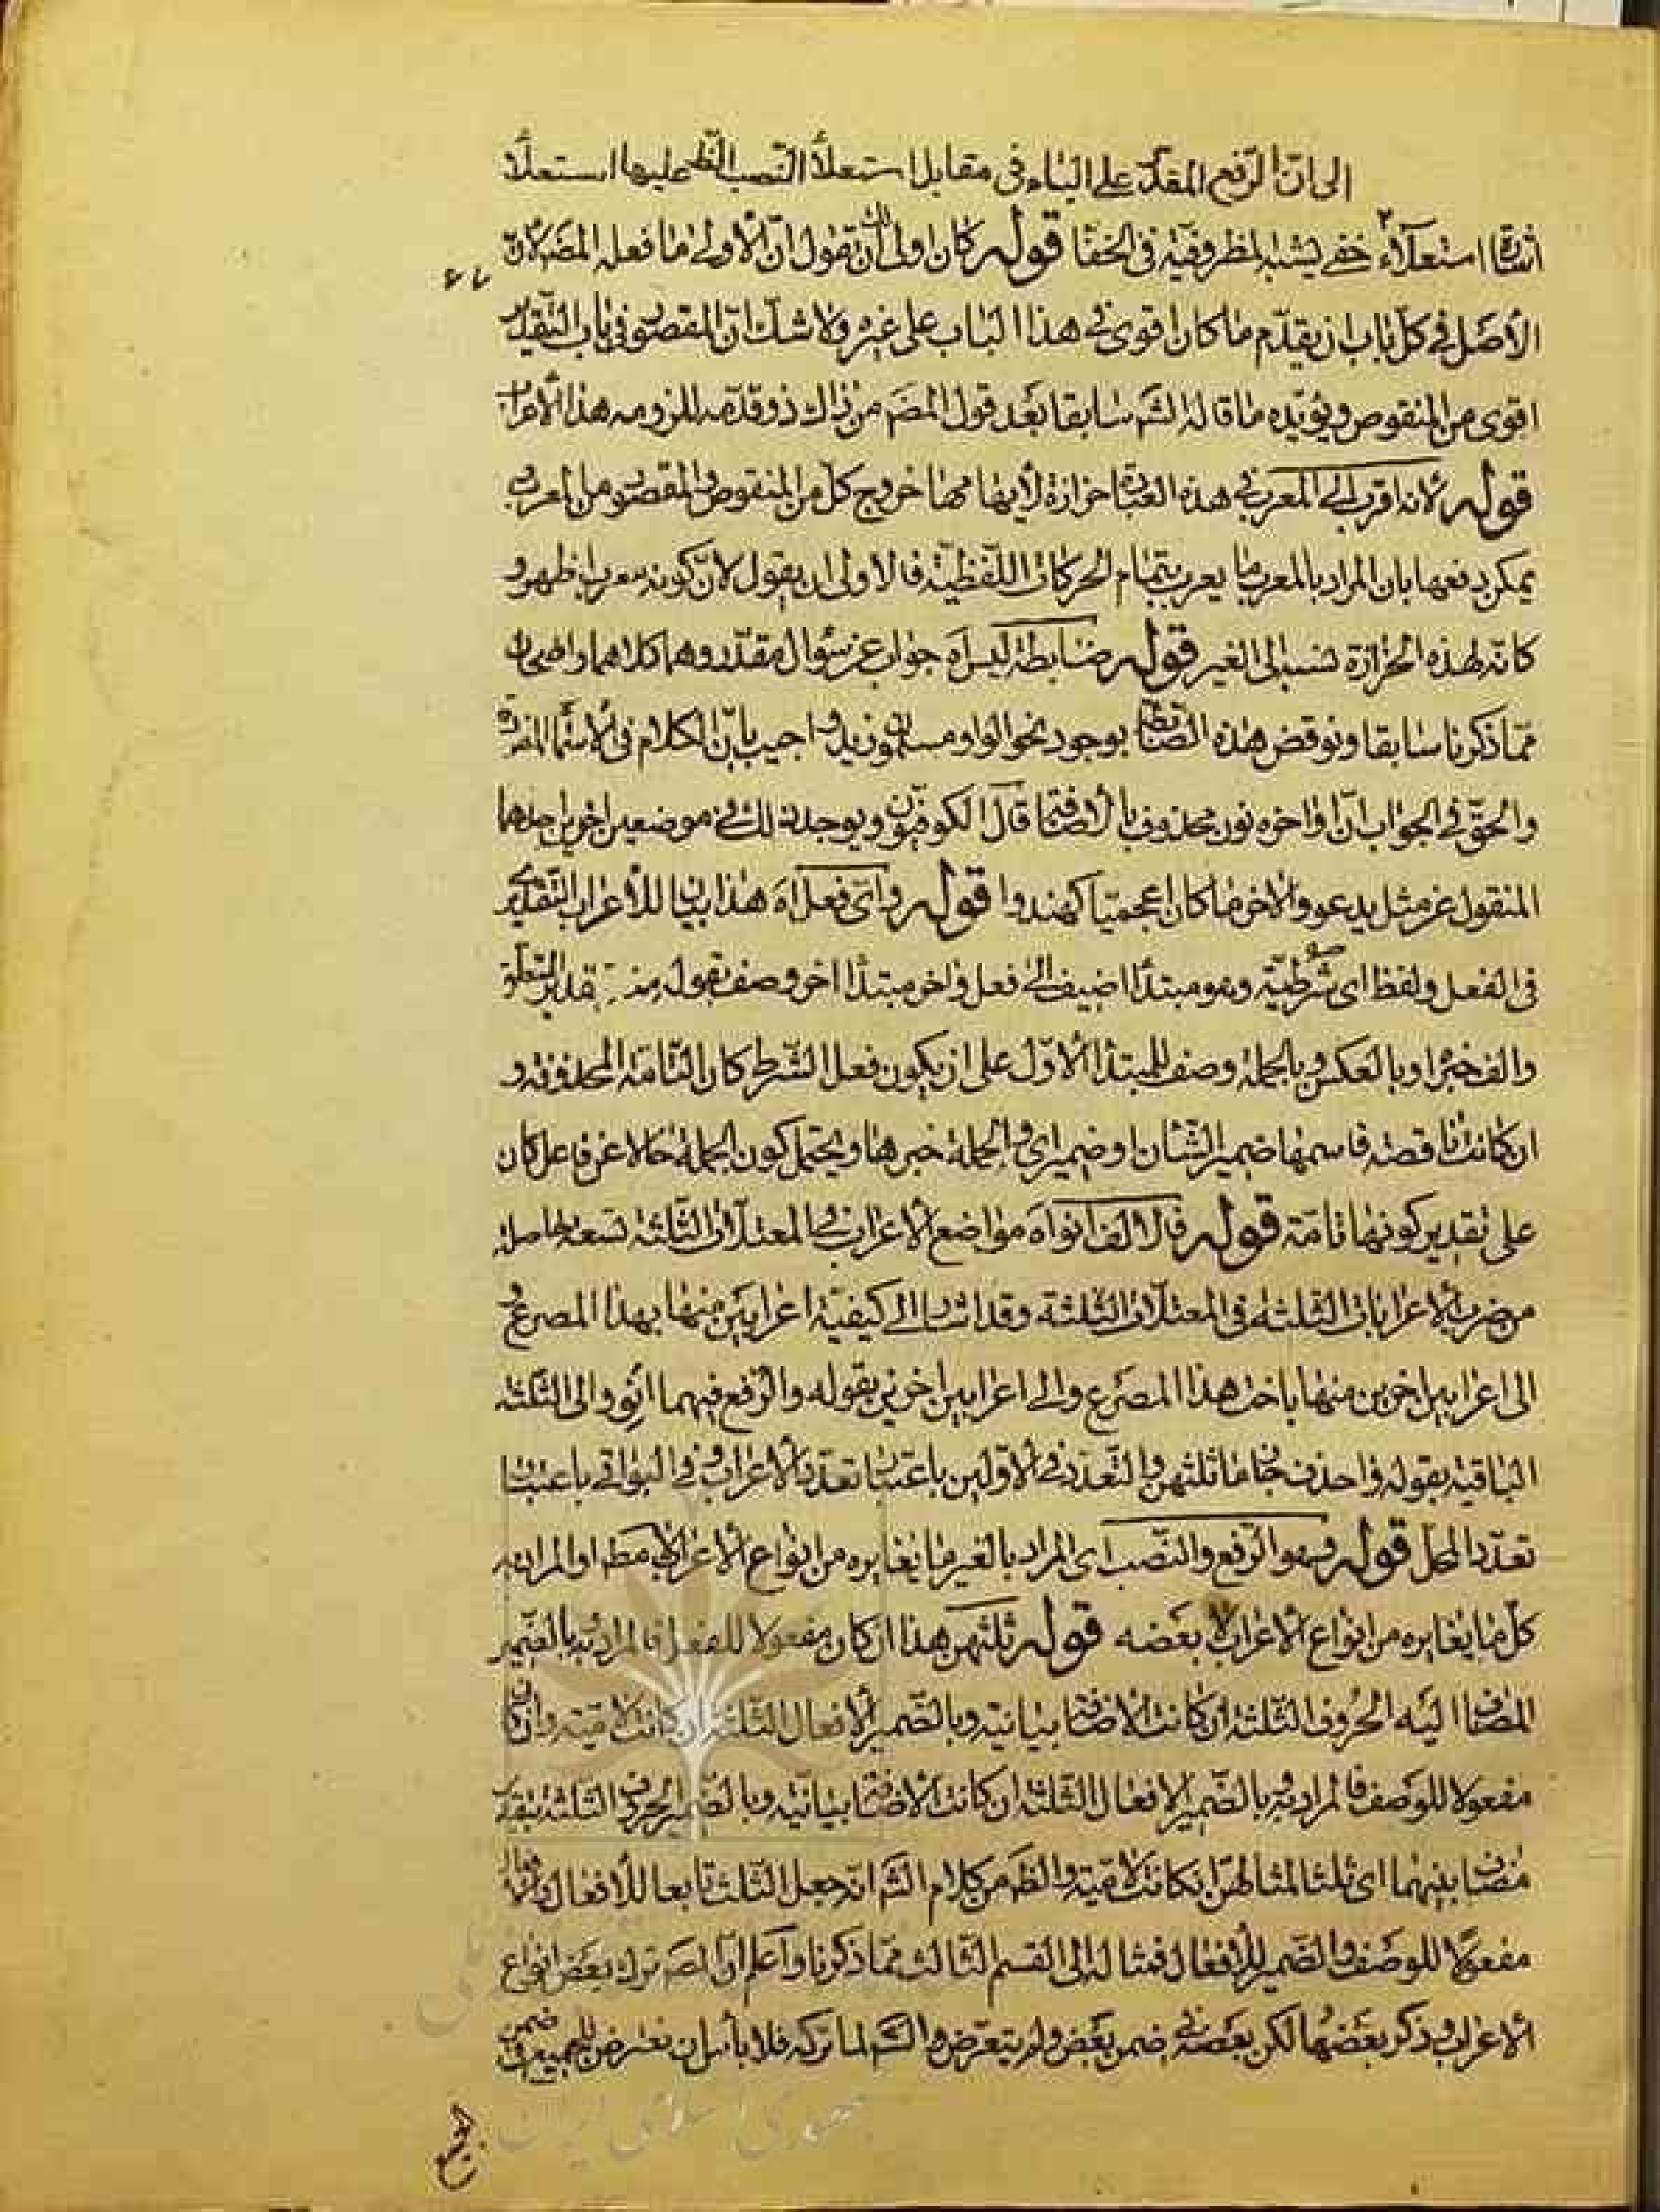 الى ان الرفع المقدر على الياء فى مقابل استعلاء النصب الظ عليها استعلاء
اشارة استعلاء خفى يشبه المظروفية فى الخفا قوله كان اولى لك ان تقول ان الأولى ما فعله المصَ لان
الأصل فى كل باب ان يقدّم ما كان اقوى فى هذا الباب على غيره ولا شك ان المقصور فى باب التقدير
اقوى من المنقوص ويؤيده ما قاله الشَم سابقا بعد قول المصَ من ذاك ذو قدّمه للزومه هذا الأعراب
قوله لأنه اقرب الى المعرب فى هذه العبارة حزازة لأيهامها خروج كل من المنقوص والمقصور من المعرب
يمكن دفعها بان المراد بالمعرب ما يعرب بتمام الحركات اللفظيّة فالاولى ان يقول لان كونه معربا اظهر و
كانه لهذه الحزازة نسب الى الغير قوله ضابطة ليس اهَ جواب عن سؤال مقدّر وهما كلاهما واضحان
ممّا ذكرنا سابقا ونوقض هذه الضابطة بوجود نحو الواو ومسلمو زيد واجيب بان الكلام فى الأسماء المفردة
والحقّ فى الجواب ان اواخره نون محذوف بالأضافة قال الكوفيّون ويوجد ذلك فى موضعين اخرين احدهما
المنقول عن مثل يدعو والاخر ما كان اعجميّا كهندوا قوله واىّ فعل اهَ هذا بيان للأعراب التقديرى
فى الفعل ولفظ اى شرطيّة وهو مبتدأ اضيف الى فعل واخر مبتدأ اخر وصف بقوله منه بتقدير المتعلق
والف خبر او بالعكس وبالجملة وصف للمبتدأ الأوّل على ان يكون فعل الشرط كان التامّة المحذوفة و
ان كانت ناقصة فاسمها ضمير الشّأن او ضمير اى والجملة خبرها ويحتمل كون الجملة حالا عن فاعل كان
على تقدير كونها تامّة قوله فالالف انو اهَ مواضع الاعراب فى المعتلات الثّلثة تسعة حاصلة
من ضرب الاعرابات الثلثة فى المعتلات الثّلثة وقد اشار الى كيفيّة اعرابين منها بهذا المصرع و
الى اعرابين اخرين منها باخت هذا المصرع والى اعرابين اخرين بقوله والرّفع فيهما انو والى الثلثة
الباقية بقوله واحذف جازما ثلثهن والتّعدّد فى الأولين باعتبار تعدّد الأعراب وفى البواقى باعتبار
تعدّد المحل قوله وهو الرّفع والنّصب اى المراد بالغير ما يغايره من انواع الأعراب لا مط او المراد به
كلّ ما يغايره من انواع الأعراب لا بعضه قوله ثلثهن هذا ان كان مفعولا للفعل فالمراد به بالضمير
المضاف اليه الحروف الثّلثة ان كانت الأضافة بيانية وبالضّمير الأفعال الثلثة ان كانت لاميّة وان كان
مفعولا للوصف فالمراد به بالضّمير الافعال الثّلثة ان كانت الأضافة بيانيّة وبالضمير الحروف الثلثة بتقدير
مضاف بينهما اى ثلث امثالهن ان كانت لاميّة والظَ من كلام الشَم انه جعل الثلث تابعا للأفعال
مفعولا للوصف والضّمير للأفعال فمثاله الى القسم الثالث ممّا ذكرنا واعلم ان المصَ ترك بعض انواع
الاعراب وذكر بعضها لكن بعضه فى ضمن بعض ولم يتعرّض الشَم لما تركه فلا بأس ان نعترض للجميع فى ضمن